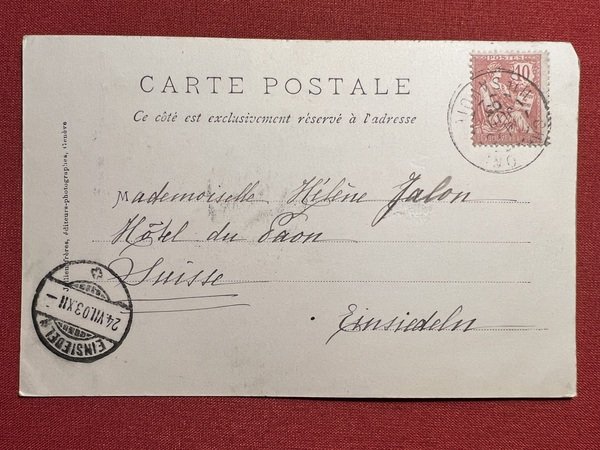 POSTES
10
CARTE POSTALE
Ce côté est exclusivement réservé à l'adresse
Mademoiselle Hélène Jalon
Hôtel du Paon
Suisse
Einsiedeln
24.VII.03.XII
EINSIEDELN
frères, éditeurs-photographes, Genève